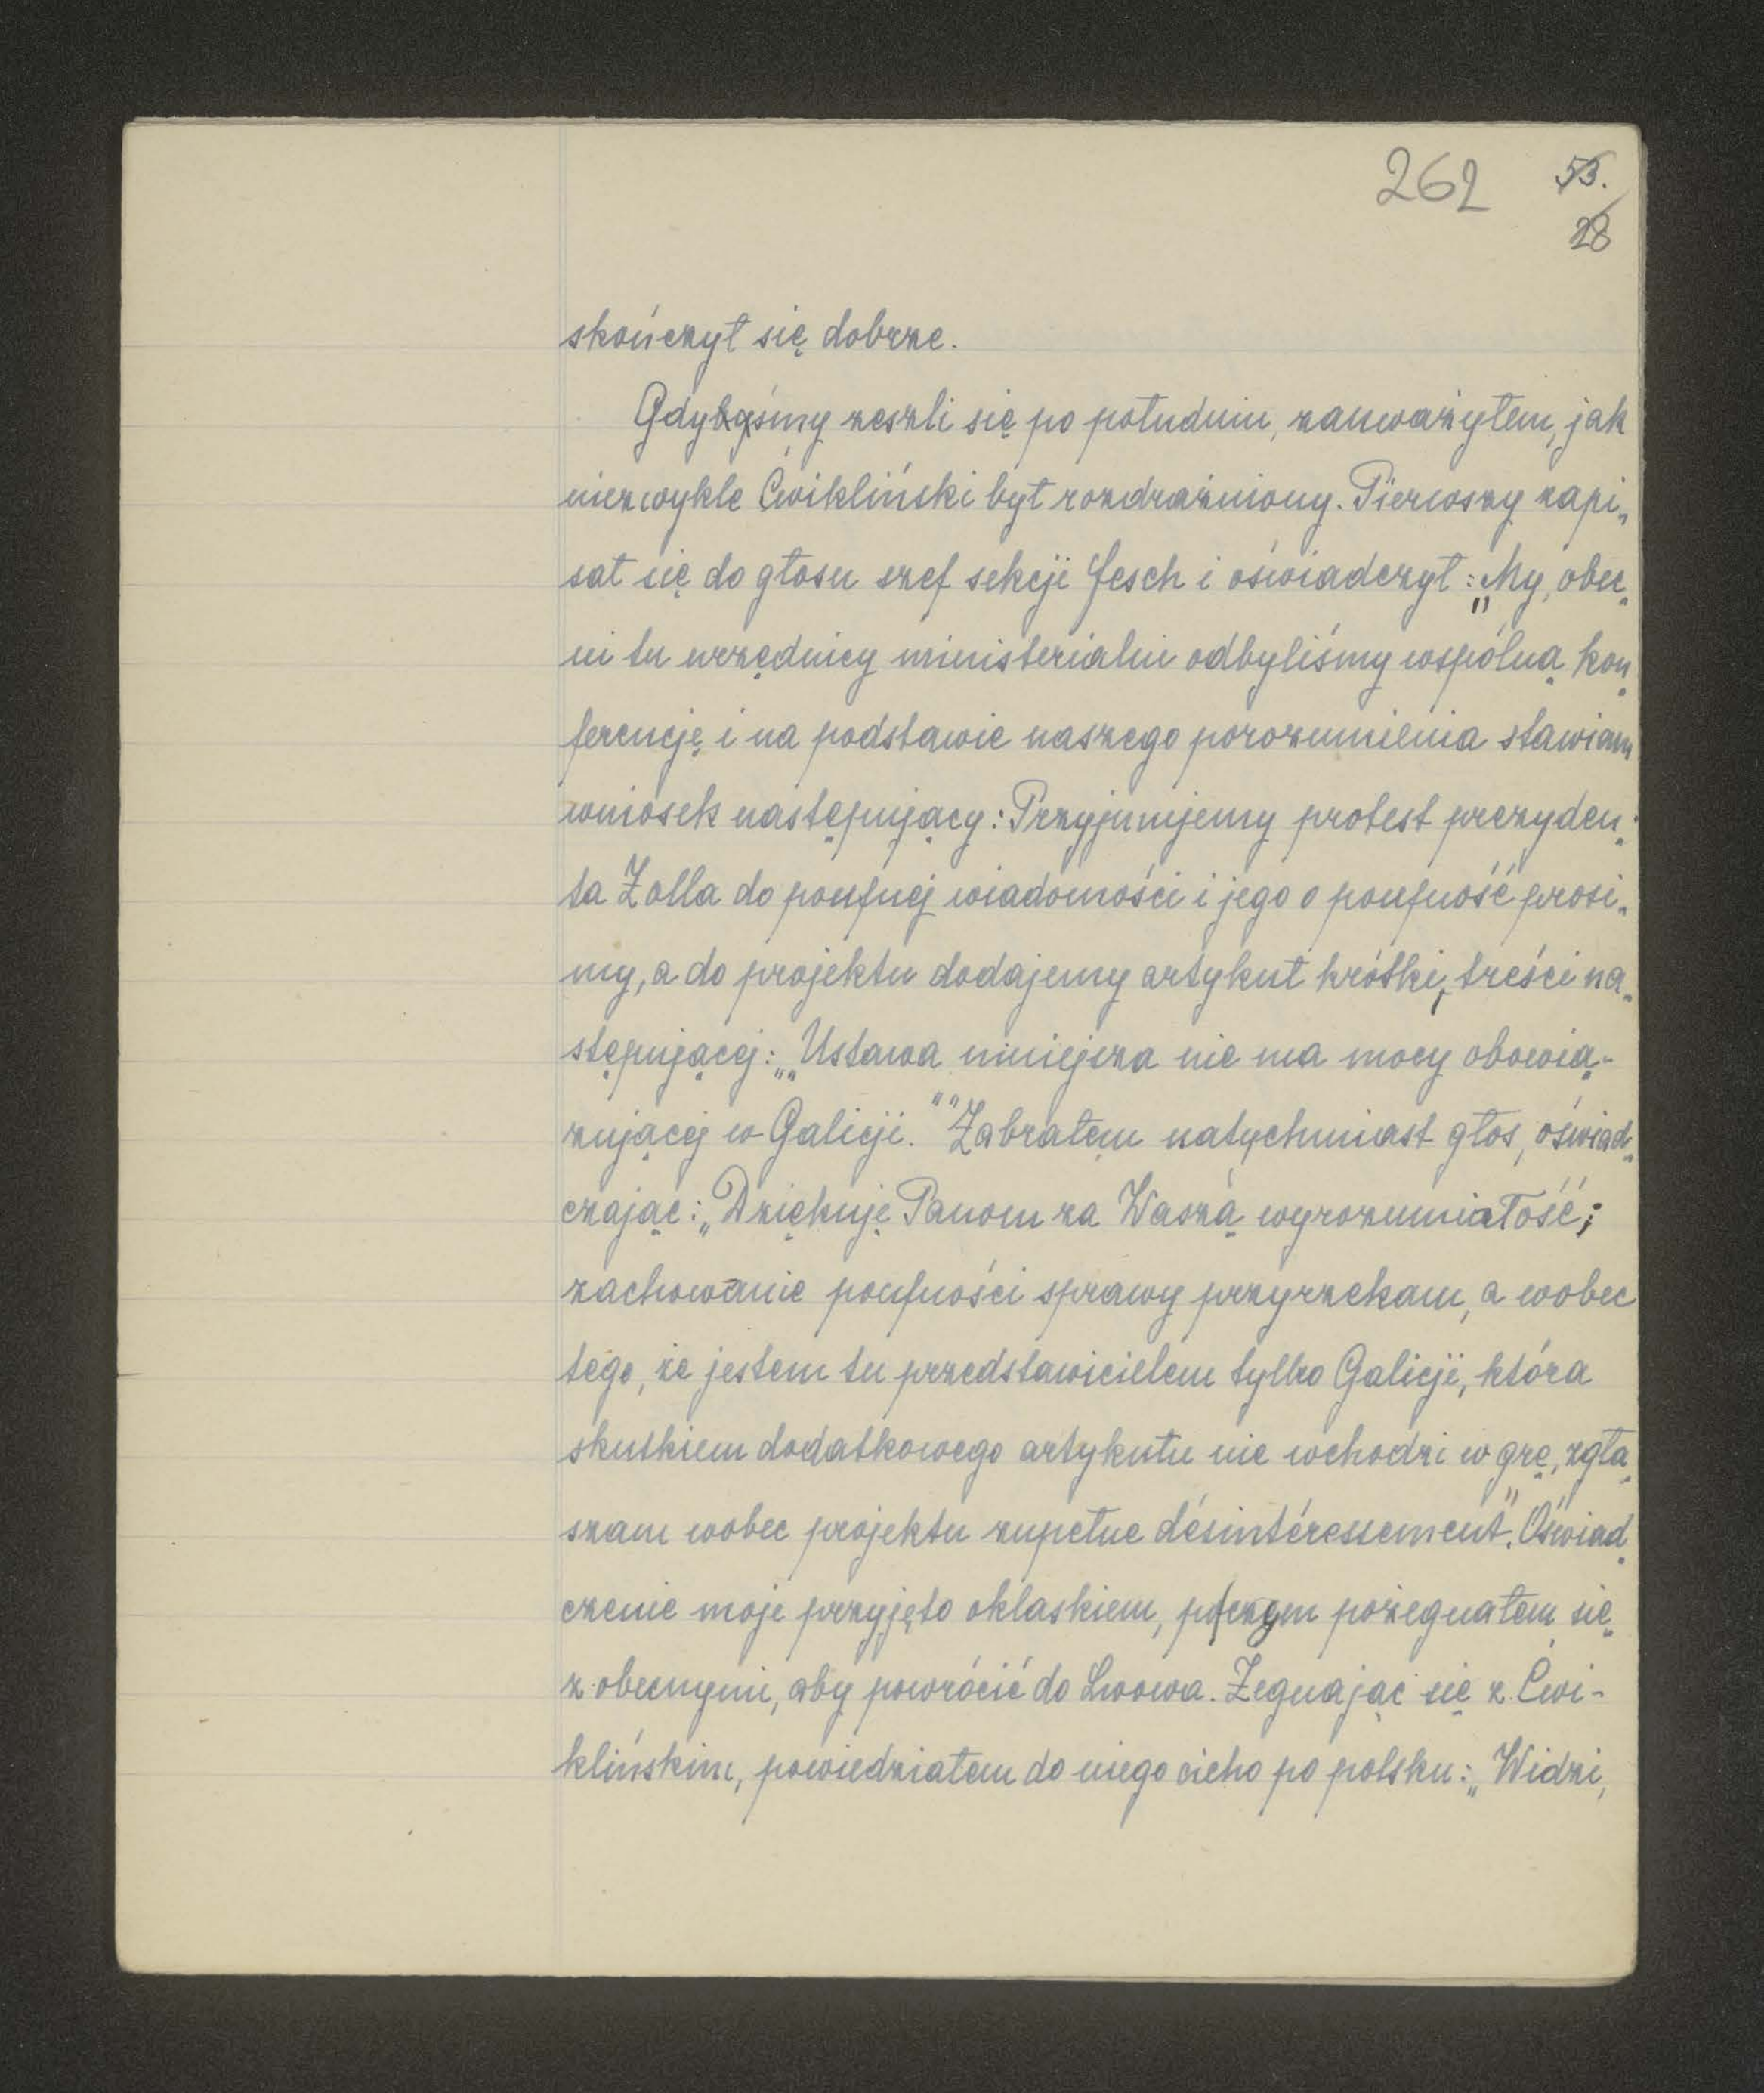 262 55.
28
skończył się dobrze.
Gdyśmy zeszli się po południu, zauważyłem, jak
niezwykle Ćwikliński był rozdrażniony. Pierwszy zapi„
sał się do głosu szef sekcji Jesch i oświadczył: „My, obec„
ni tu urzędnicy ministerialni odbyliśmy wspólną kon„
ferencję i na podstawie naszego porozumienia stawiam
wniosek następujący: Przyjmujemy protest prezyden„
ta Zolla do poufnej wiadomości i jego o poufność prosi„
my, a do projektu dodajemy artykuł krótki, treści na„
stępującej: „„Ustawa niniejsza nie ma mocy obowią-
zującej w Galicji."" Zabrałem natychmiast głos, oświad„
czając: „Dziękuję Panom za Waszą wyrozumiałość;
zachowanie poufności sprawy przyrzekam, a wobec
tego, że jestem tu przedstawicielem tylko Galicji, która
skutkiem dodatkowego artykułu nie wchodzi w grę, zgła„
szam wobec projektu zupełne désintéressement". Oświad„
czenie moje przyjęto oklaskiem, poczem pożegnałem się
z obecnymi, aby powrócić do Lwowa. Żegnając się z Ćwi-
klińskim, powiedziałem do niego cicho po polsku: „Widzi,